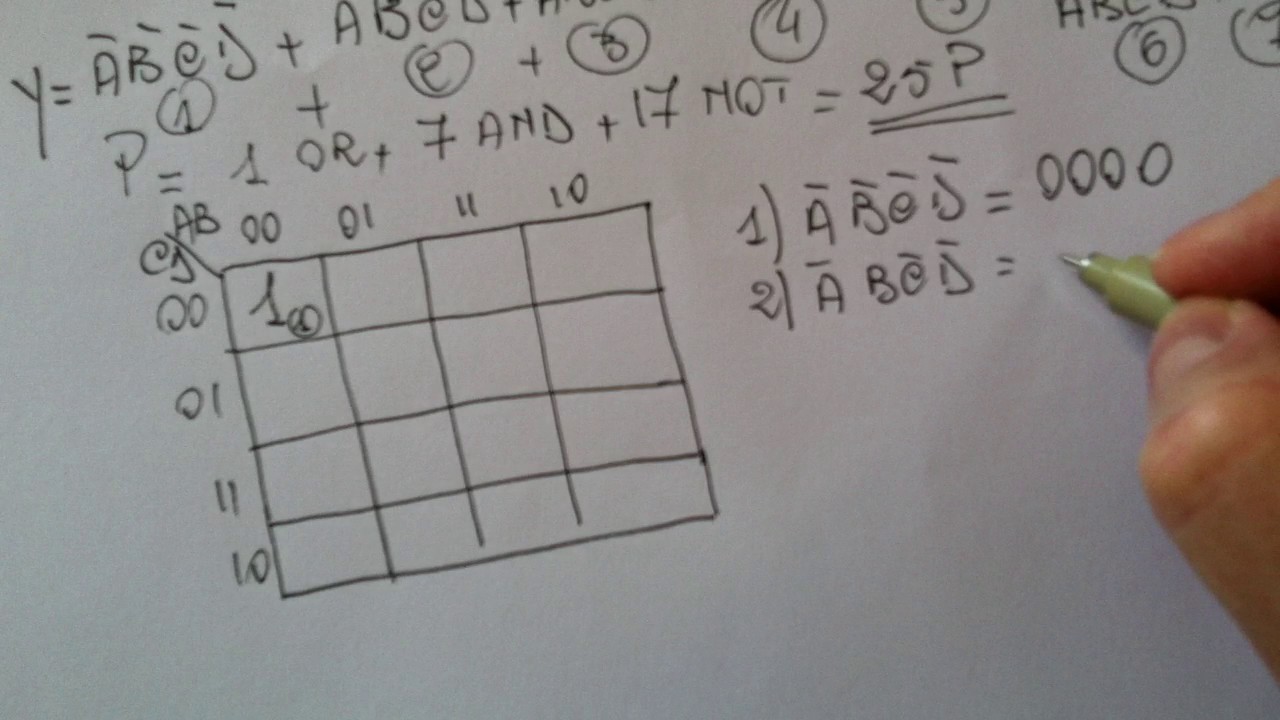 Y = A̅ B̅ C̅ D̅ +
① + ② + ③ ④ ⑥
P = 1 OR + 7 AND + 17 NOT = 25P
AB 00 01 11 10
CD
00 1①
01
11
10
1) A̅ B̅ C̅ D̅ = 0000
2) A̅ B C̅ D̅ =